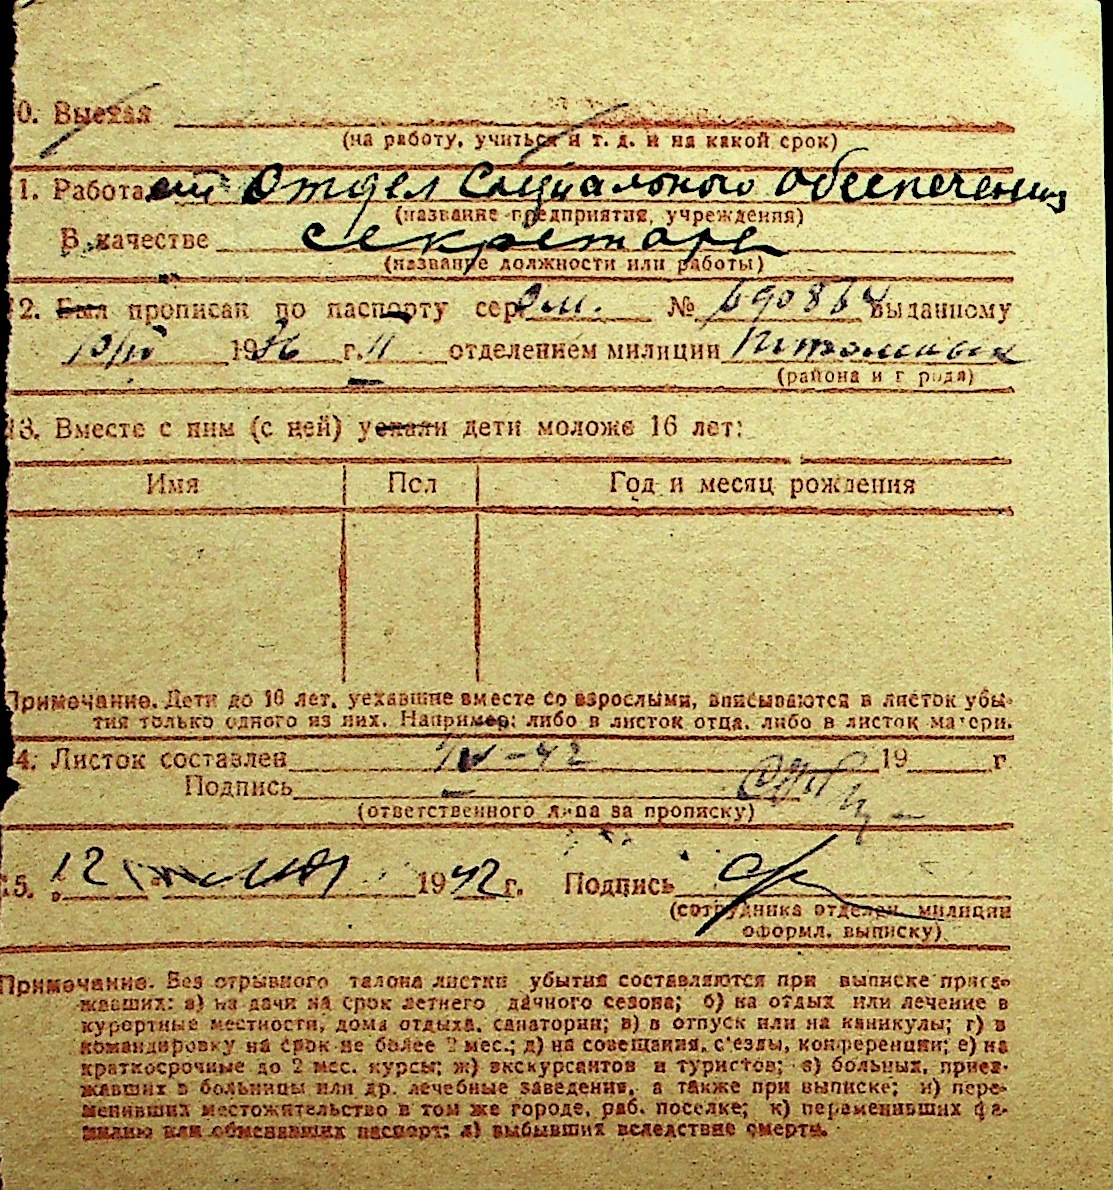 0. Выехал
(на работу, учиться и т. д. и на какой срок)
1. Работа ет Отдел Социального обеспечения
(название предприятия, учреждения)
В качестве секретаря
(название должности или работы)
2. Был прописан по паспорту сер. № 690864 выданному
1936 г. II отделением милиции
(района и города)
13. Вместе с ним (с ней) уехали дети моложе 16 лет:
Имя Пол Год и месяц рождения
Примечание. Дети до 16 лет, уехавшие вместе со взрослыми, вписываются в листок убы-
тия только одного из них. Например: либо в листок отца, либо в листок матери.
4. Листок составлен IV-42 19 г
Подпись
(ответственного лица за прописку)
15. 12 1942 г. Подпись
(сотрудника отделен. милиции
оформл. выписку)
Примечание. Без отрывного талона листки убытия составляются при выписке приез-
жавших: а) на дачи на срок летнего дачного сезона; б) на отдых или лечение в
курортные местности, дома отдыха, санатории; в) в отпуск или на каникулы; г) в
командировку на срок не более 2 мес.; д) на совещания, с'езды, конференции; е) на
краткосрочные до 2 мес. курсы; ж) экскурсантов и туристов; з) больных, приез-
жавших в больницы или др. лечебные заведения, а также при выписке; и) пере-
менивших местожительство в том же городе, раб. поселке; к) переменивших фа-
милию или обменявших паспорт; л) выбывших вследствие смерти.